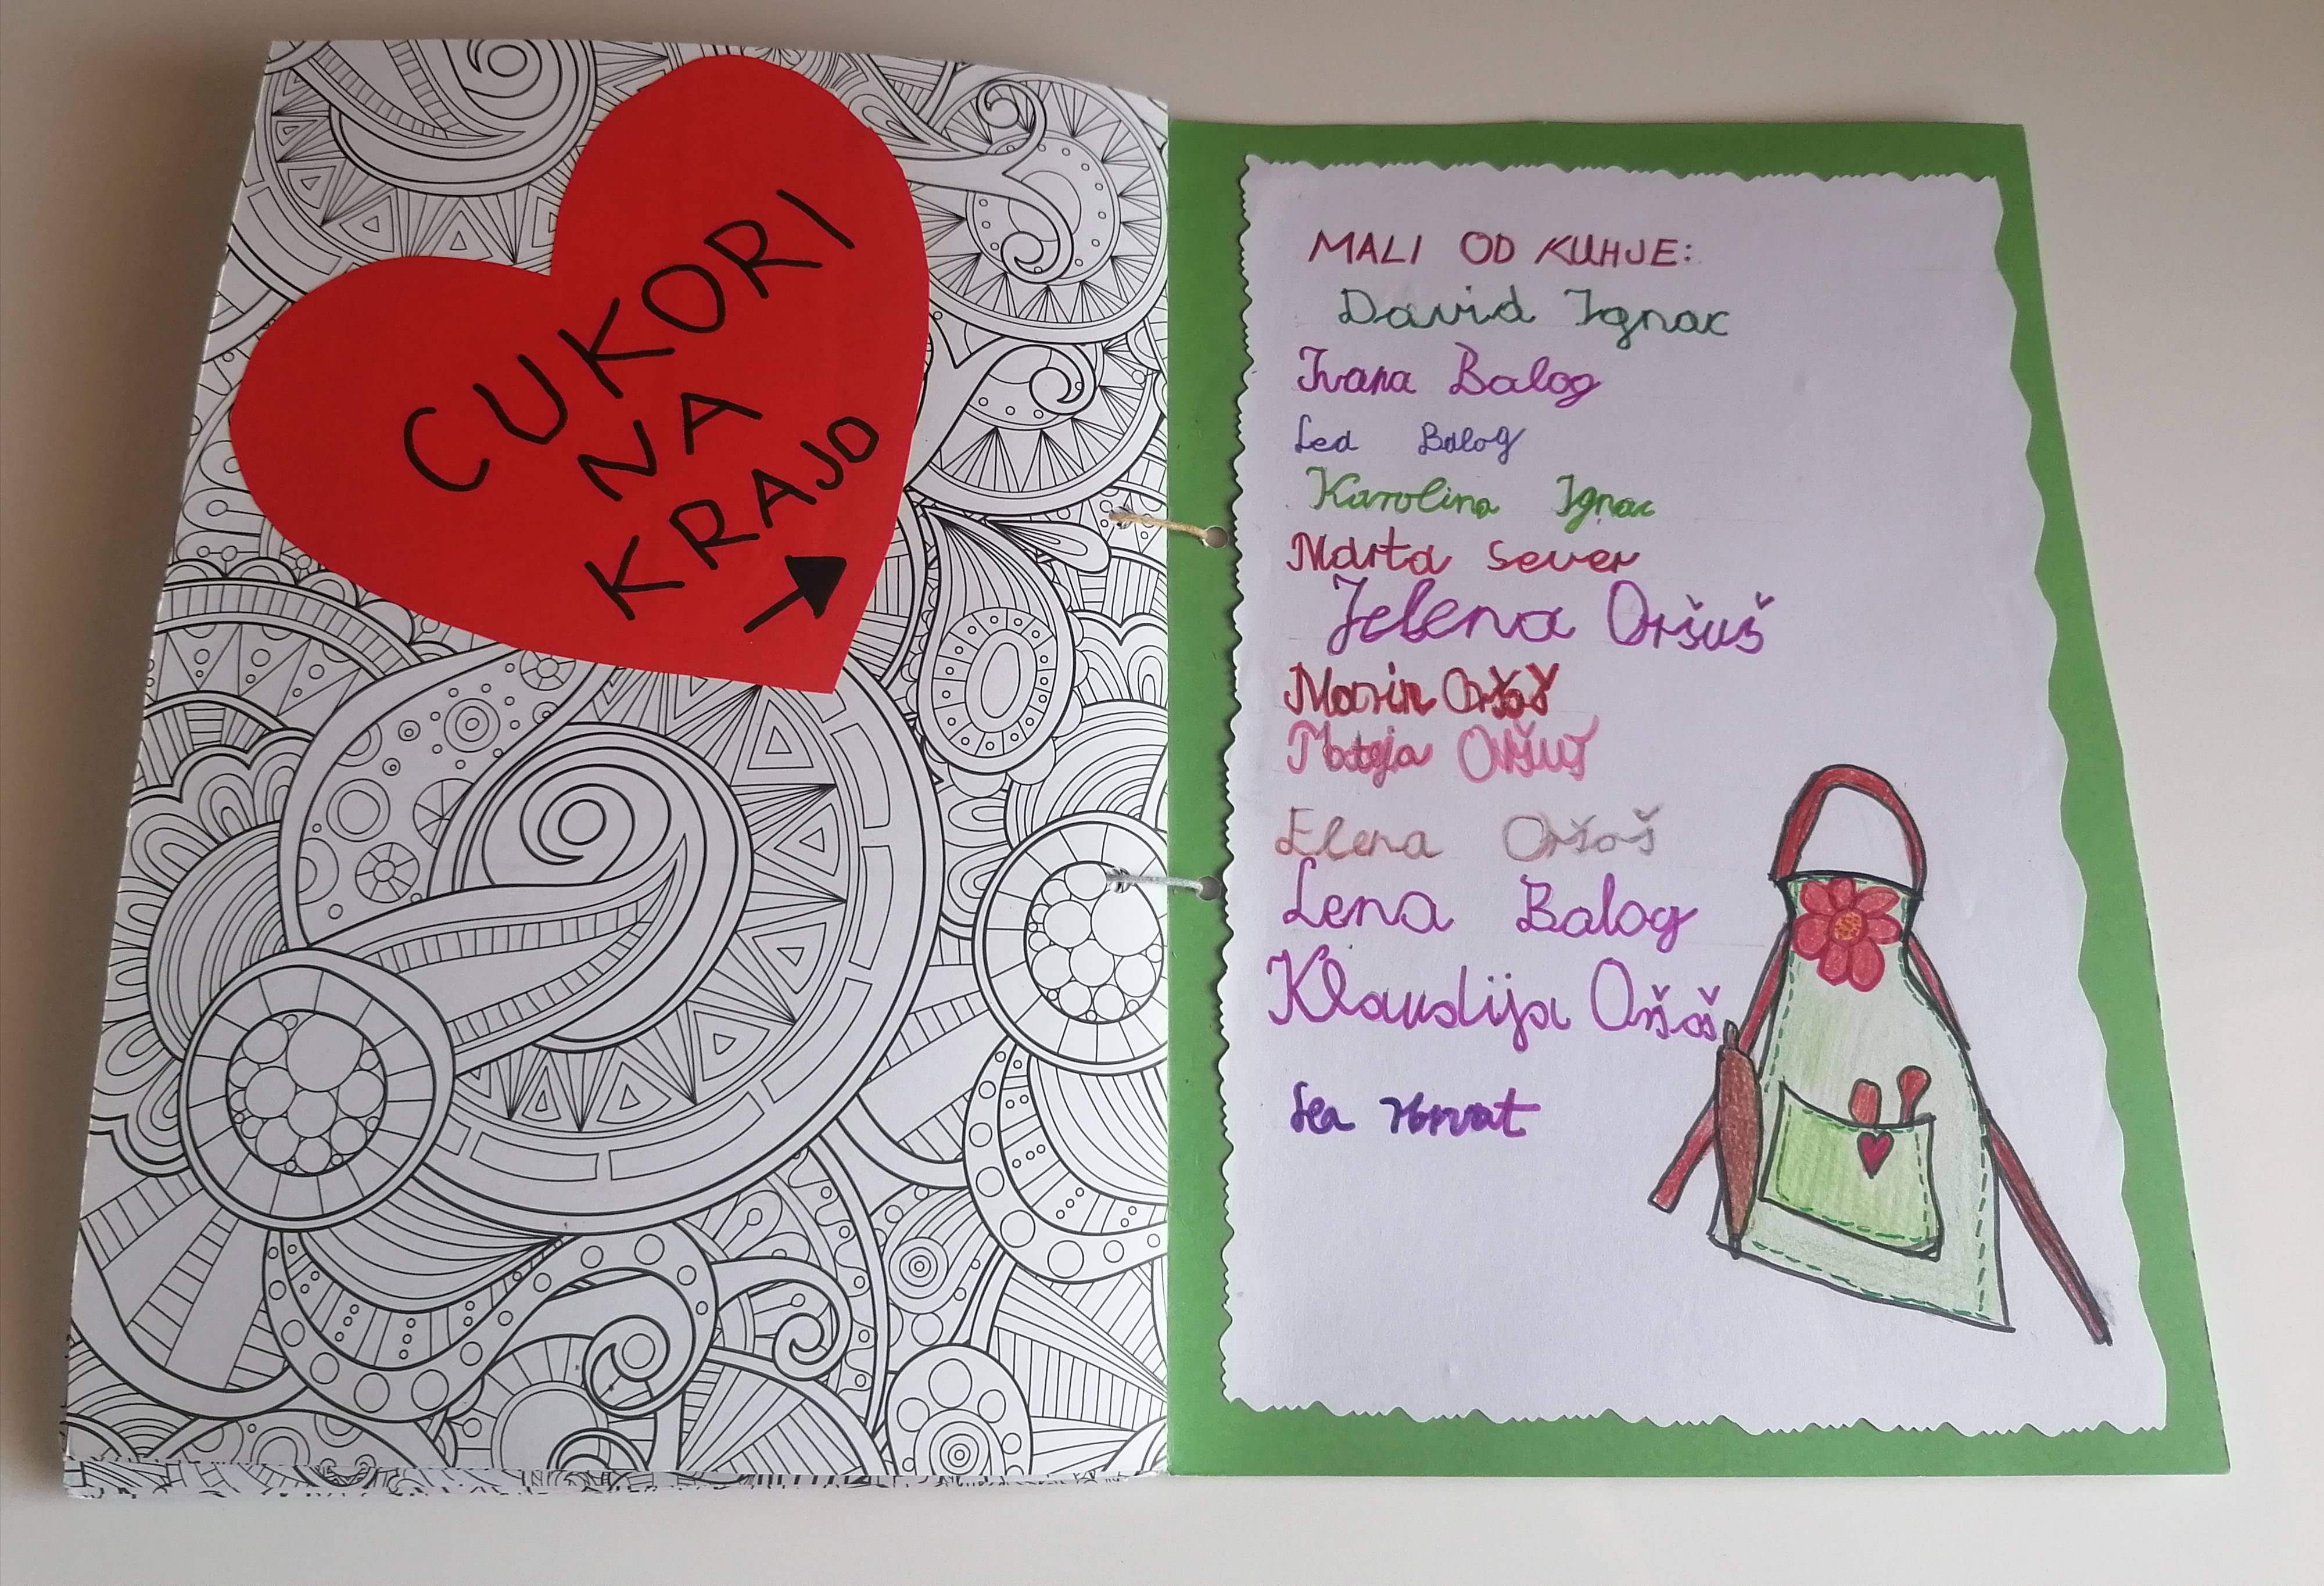 CUKORI
NA
KRAJO
MALI OD KUHJE:
David Ignac
Ivana Balog
Lea Balog
Karolina Ignac
Marta Sever
Jelena Oršuš
Marin Oršoš
Mateja Oršuš
Elena Oršoš
Lena Balog
Klaudija Oršoš
Lea Horvat